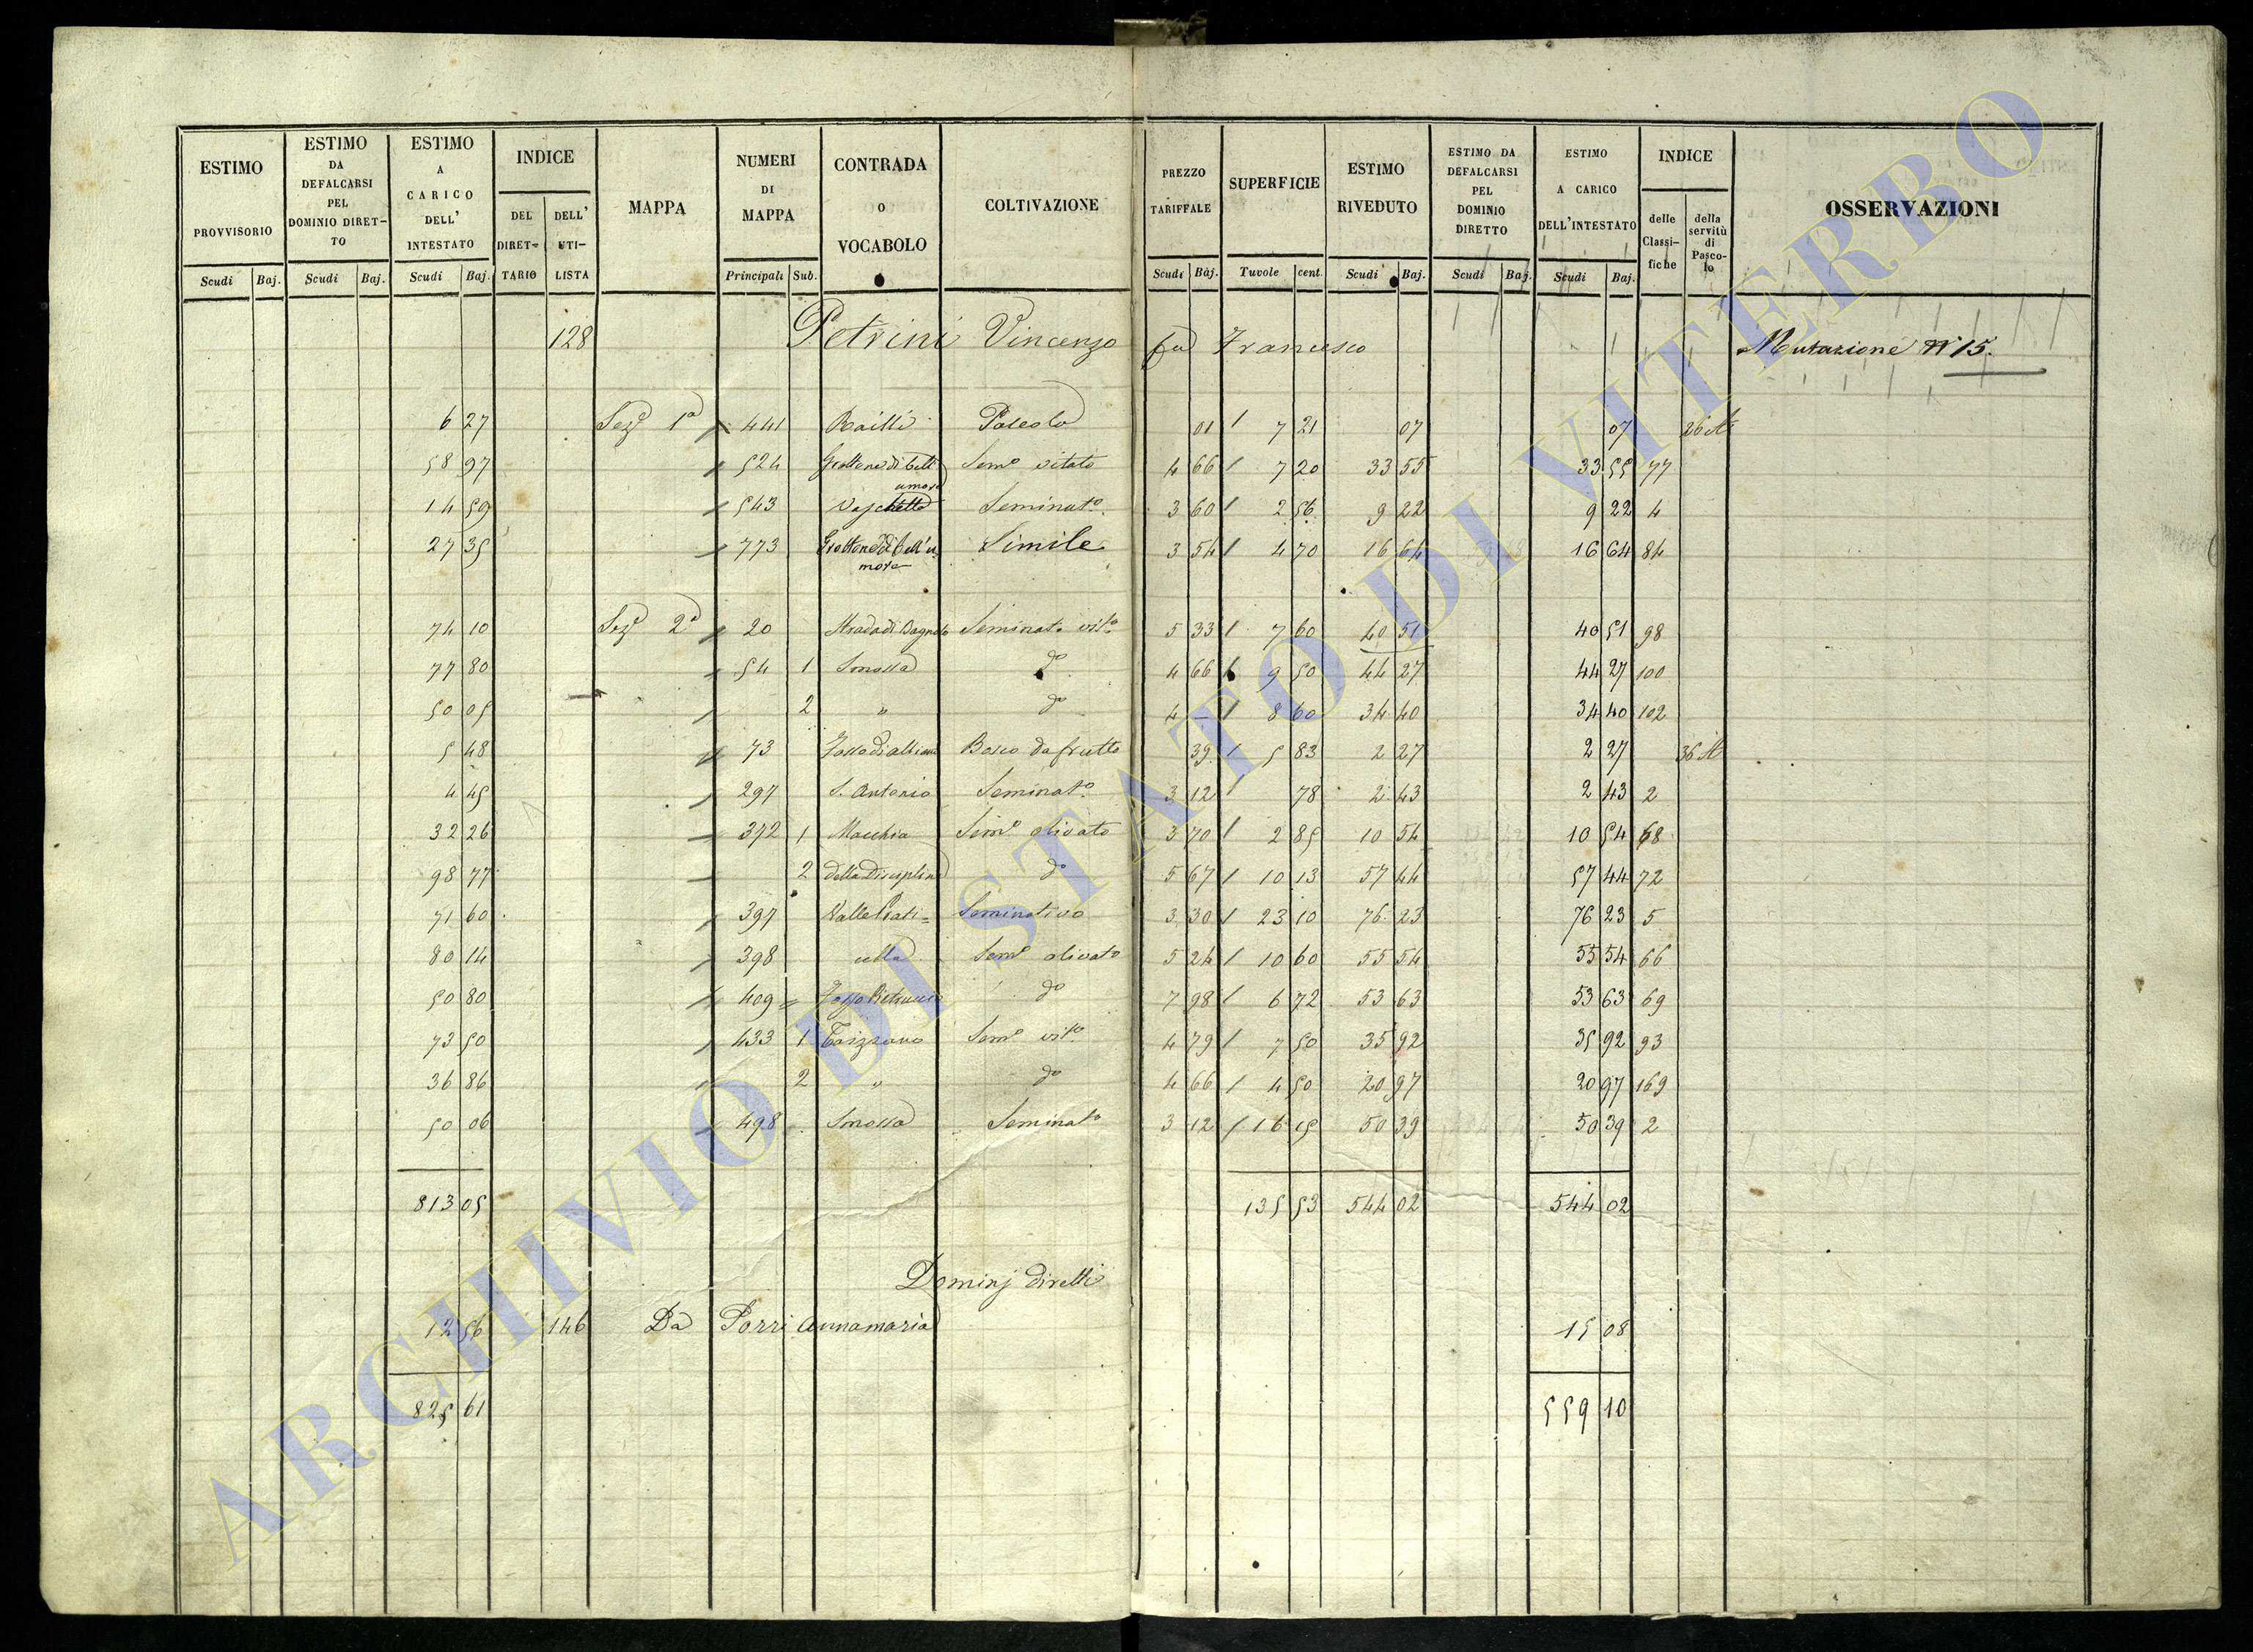 ESTIMO PROVVISORIO Scudi Baj.
ESTIMO DA DEFALCARSI PEL DOMINIO DIRETTO Scudi Baj.
ESTIMO A CARICO DELL' INTESTATO Scudi Baj.
INDICE DEL DIRETTARIO DELL' UTILISTA
MAPPA
NUMERI DI MAPPA Principali Sub.
CONTRADA O VOCABOLO
COLTIVAZIONE
PREZZO TARIFFALE Scudi Baj.
SUPERFICIE Tavole cent.
ESTIMO RIVEDUTO Scudi Baj.
ESTIMO DA DEFALCARSI PEL DOMINIO DIRETTO Scudi Baj.
ESTIMO A CARICO DELL'INTESTATO Scudi Baj.
INDICE delle Classifiche della servitù di Pascolo
OSSERVAZIONI
128 Petrini Vincenzo fu Francesco Mutazione N° 15.
6 27 Sez.e 1a 441 Pascolo 01 7 21 07 07 26 A
58 97 524 Grottone di Bell' Sem.o vitato 4 66 7 20 33 55 33 55 77
amore
14 59 543 Vaschette Seminat.o 3 60 2 56 9 22 9 22 4
27 35 773 Grottone di Bell'a Simile 3 54 4 70 16 64 16 64 84
more
74 10 Sez.e 2a 20 Strada di Bagnolo Seminato vit.o 5 33 7 60 40 51 40 51 98
77 80 54 1 Smossa d.o 4 66 9 50 44 27 44 27 100
50 05 2 " d.o 4 - 8 60 34 40 34 40 102
5 48 73 Fosso di Bosco da frutto 39 5 83 2 27 2 27 36 A
4 45 297 S. Antonio Seminat.o 3 12 78 2 43 2 43 2
32 26 372 1 Macchia Sem.o olivato 3 70 2 85 10 54 10 54 68
98 77 2 della Disciplina d.o 5 67 10 13 57 44 57 44 72
71 60 397 Valle Prati= Seminativo 3 30 23 10 76 23 76 23 5
80 14 398 cella Sem.o olivato 5 24 10 60 55 54 55 54 66
50 80 409 Fosso d.o 7 98 6 72 53 63 53 63 69
73 50 433 1 Sem.o vit.o 4 79 7 50 35 92 35 92 93
36 86 2 " d.o 4 66 4 50 20 97 20 97 169
50 06 498 Smossa Seminat.o 3 12 16 15 50 39 50 39 2
813 05 135 53 544 02 544 02
Dominj diretti
12 56 146 Da Porri Annamaria 15 08
825 61 559 10
ARCHIVIO DI STATO DI VITERBO